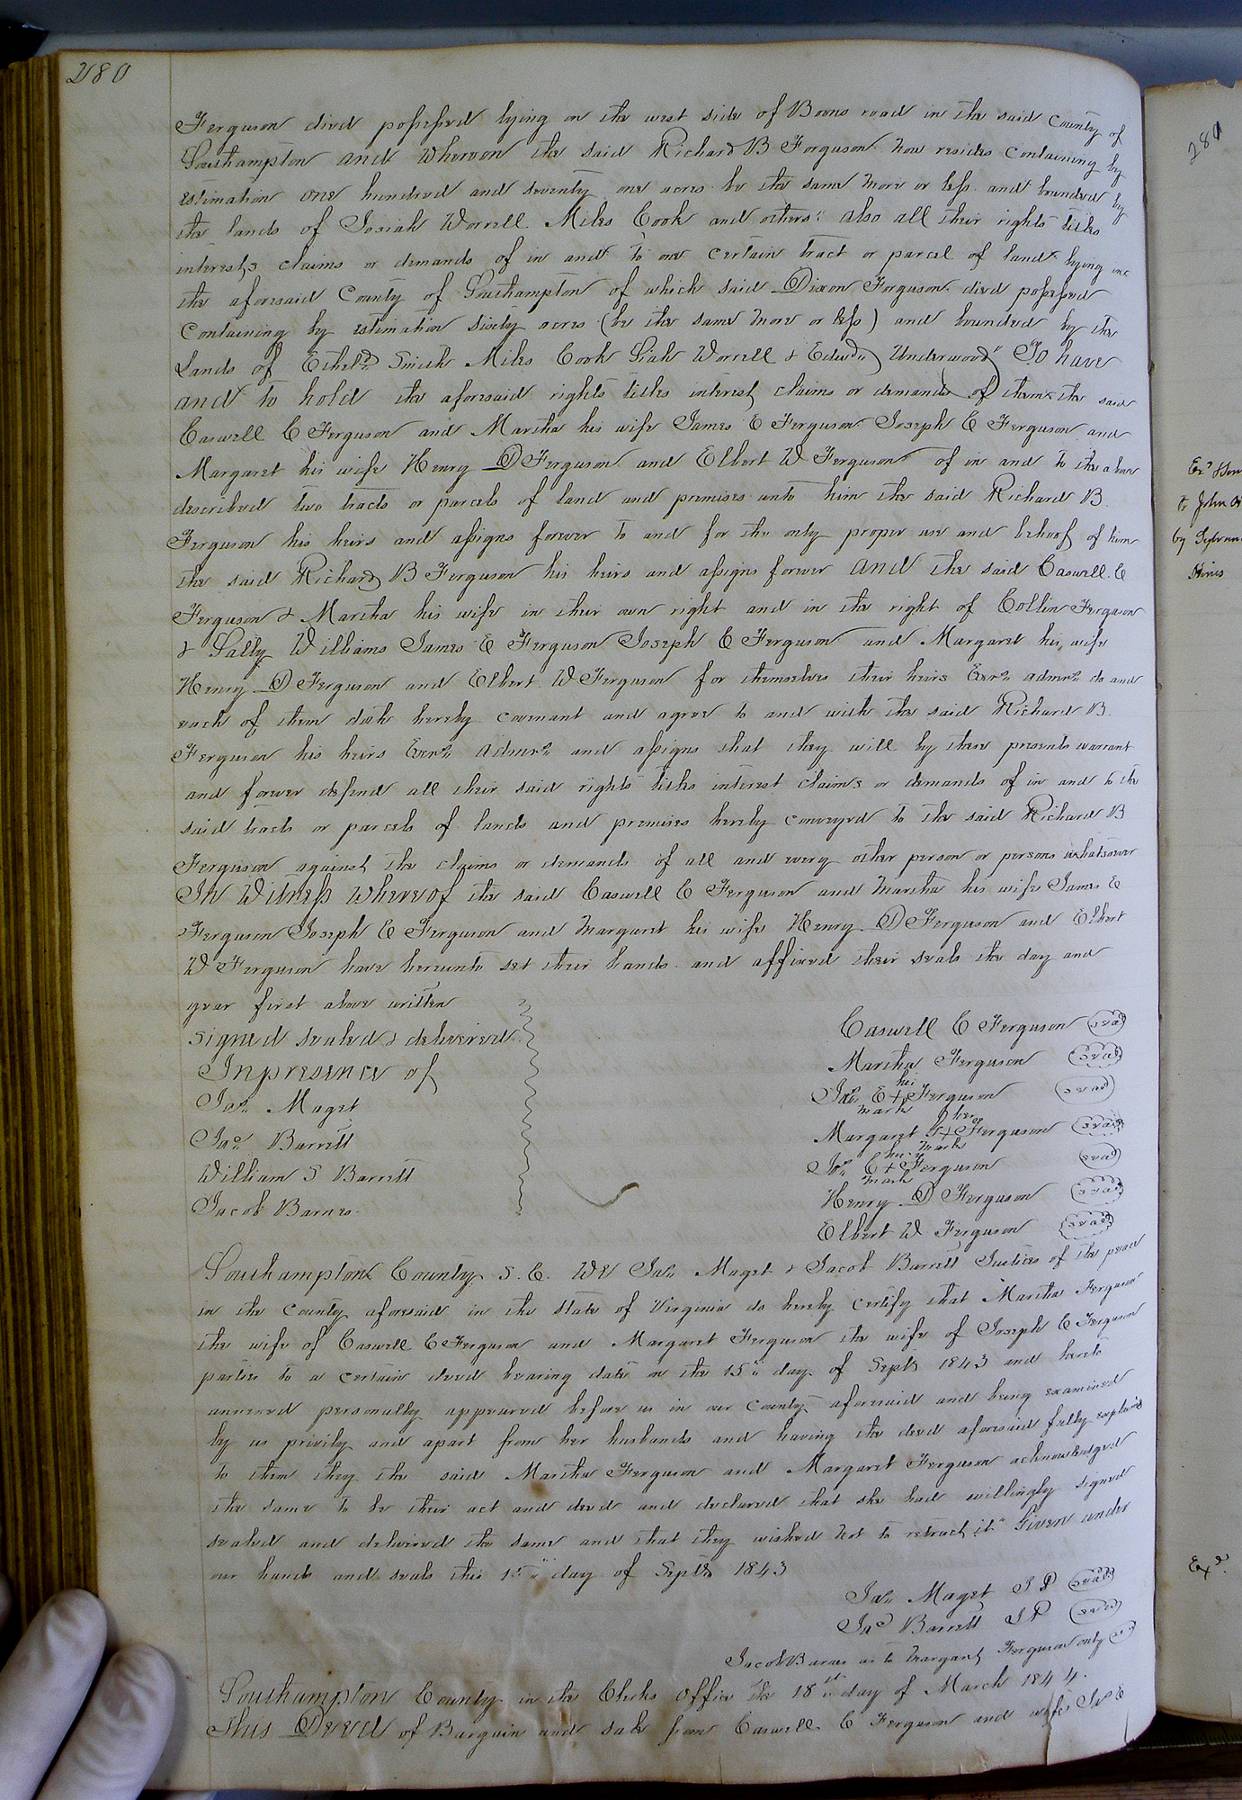 280
Ferguson died possessed lying on the west side of Boons road in the said county of
Southampton and whereon the said Richard B Ferguson now resides containing by
estimation one hundred and seventy one acres be the same more or less and bounded by
the lands of Josiah Worrell Miles Cook and others: also all their rights titles
interests claims or demands of in and to one certain tract or parcel of land lying in
the aforesaid County of Southampton of which said Dixon Ferguson died possessed
Containing by estimation sixty acres (be the same more or less) and bounded by the
Lands of Smith Miles Cook Worrell & Underwood To have
and to hold the aforesaid rights titles interest claims or demands of them the said
Caswell C Ferguson and Martha his wife James E Ferguson Joseph C Ferguson and
Margaret his wife Henry D Ferguson and Elbert W Ferguson of in and to the above
described two tracts or parcels of land and premises unto him the said Richard B.
Ferguson his heirs and assigns forever to and for the only proper use and behoof of him
the said Richard B Ferguson his heirs and assigns forever and the said Caswell C
Ferguson & Martha his wife in their own right and in the right of Collin Ferguson
& Sally Williams James E Ferguson Joseph C Ferguson and Margaret his wife
Henry D Ferguson and Elbert W Ferguson for themselves their heirs Exrs admrs do and
each of them doth hereby covenant and agree to and with the said Richard B.
Ferguson his heirs Exrs admrs and assigns that they will by these presents warrant
and forever defend all their said rights titles interest claims or demands of in and to the
said tracts or parcels of lands and premises hereby conveyed to the said Richard B
Ferguson against the claims or demands of all and every other person or persons whatsoever
In Witness Whereof the said Caswell C Ferguson and Martha his wife James E
Ferguson Joseph C Ferguson and Margaret his wife Henry D Ferguson and Elbert
W Ferguson have hereunto set their hands and affixed their seals the day and
year first above written
signed sealed & delivered
In presence of
Jas. Maget
Jaco Barrett
William S Barrett
Jacob Barnes
Caswell C Ferguson seal
Martha Ferguson seal
his
Jas E + Ferguson seal
mark
her
Margaret + Ferguson seal
mark
his
Jos C + Ferguson seal
mark
Henry D Ferguson seal
Elbert W Ferguson seal
Southampton County S.C. We Jas Maget & Jacob Barrett Justices of the peace
in the County aforesaid in the State of Virginia do hereby certify that Martha Ferguson
the wife of Caswell C Ferguson and Margaret Ferguson the wife of Joseph C Ferguson
parties to a certain deed bearing date on the 15th day of Septr 1843 and hereto
annexed personally appeared before us in our County aforesaid and being examined
by us privily and apart from her husbands and having the deed aforesaid fully explained
to them they the said Martha Ferguson and Margaret Ferguson acknowledged
the same to be their act and deed and declared that she had willingly signed
sealed and delivered the same and that they wished not to retract it. Given under
our hands and seals this 15th day of Septr 1843
Jas Maget JP seal
Jaco Barrett JP seal
Jacob Barnes as to Margaret Ferguson only
Southampton County in the Clerks Office the 18th day of March 1844.
This Deed of Bargain and sale from Caswell C Ferguson and wife Js E
281
to John
by
Exd.